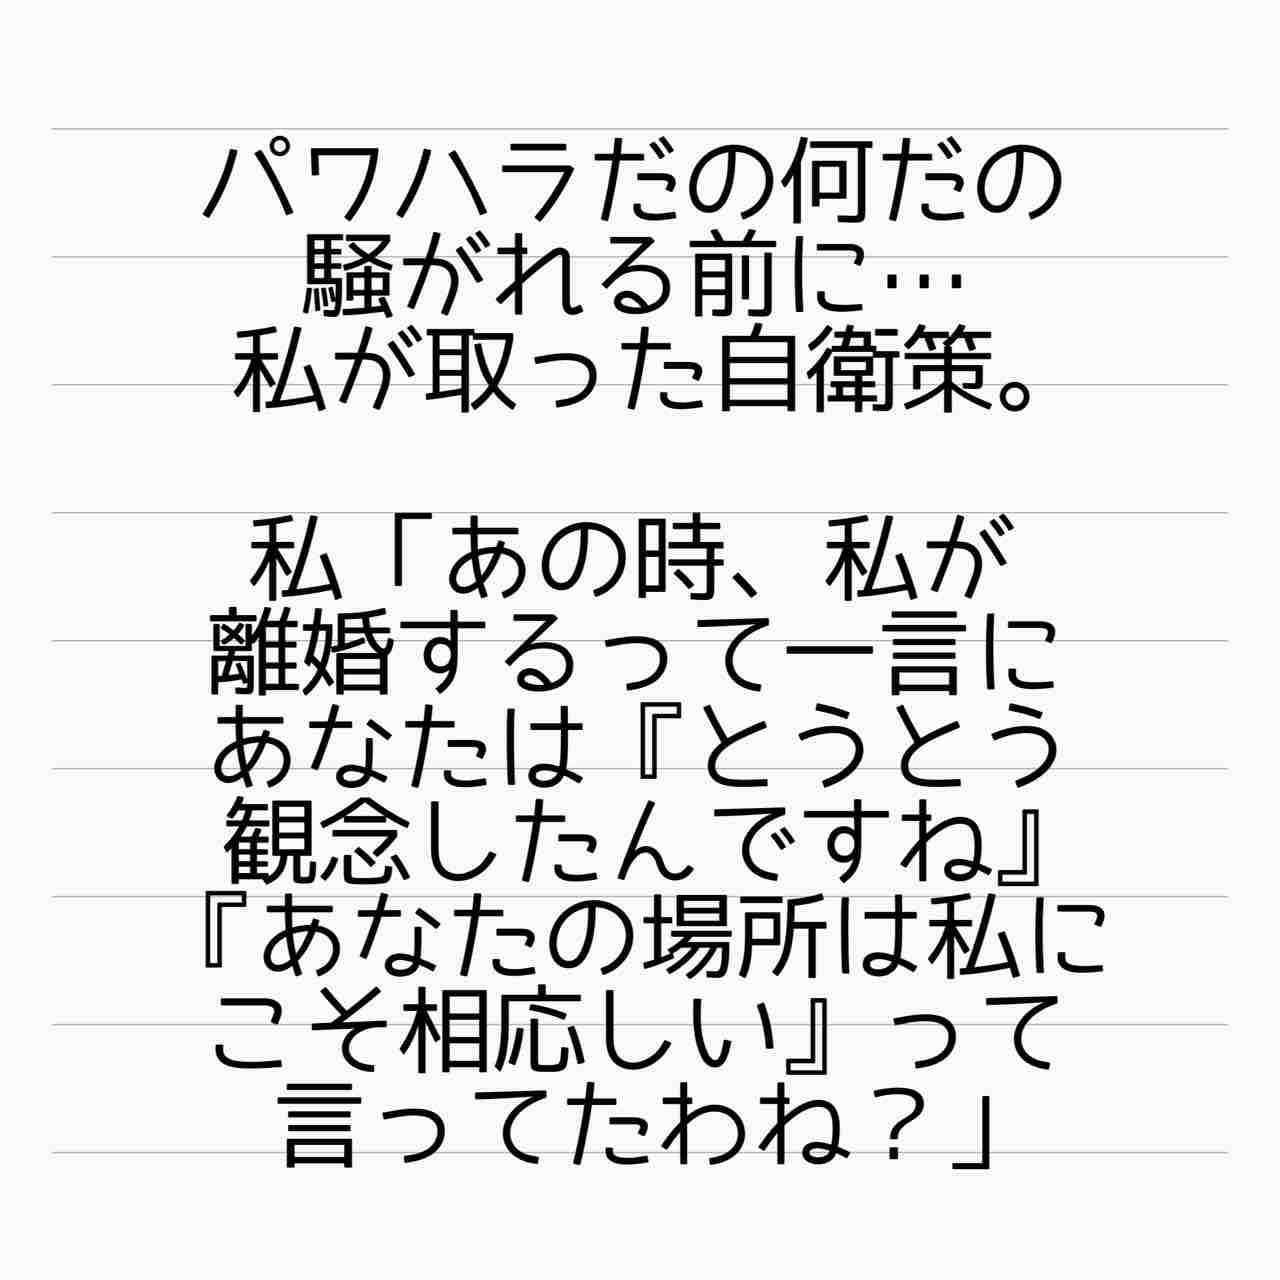 パワハラだの何だの
騒がれる前に…
私が取った自衛策。
私「あの時、私が
離婚するって一言に
あなたは『とうとう
観念したんですね』
『あなたの場所は私に
こそ相応しい』って
言ってたわね？」